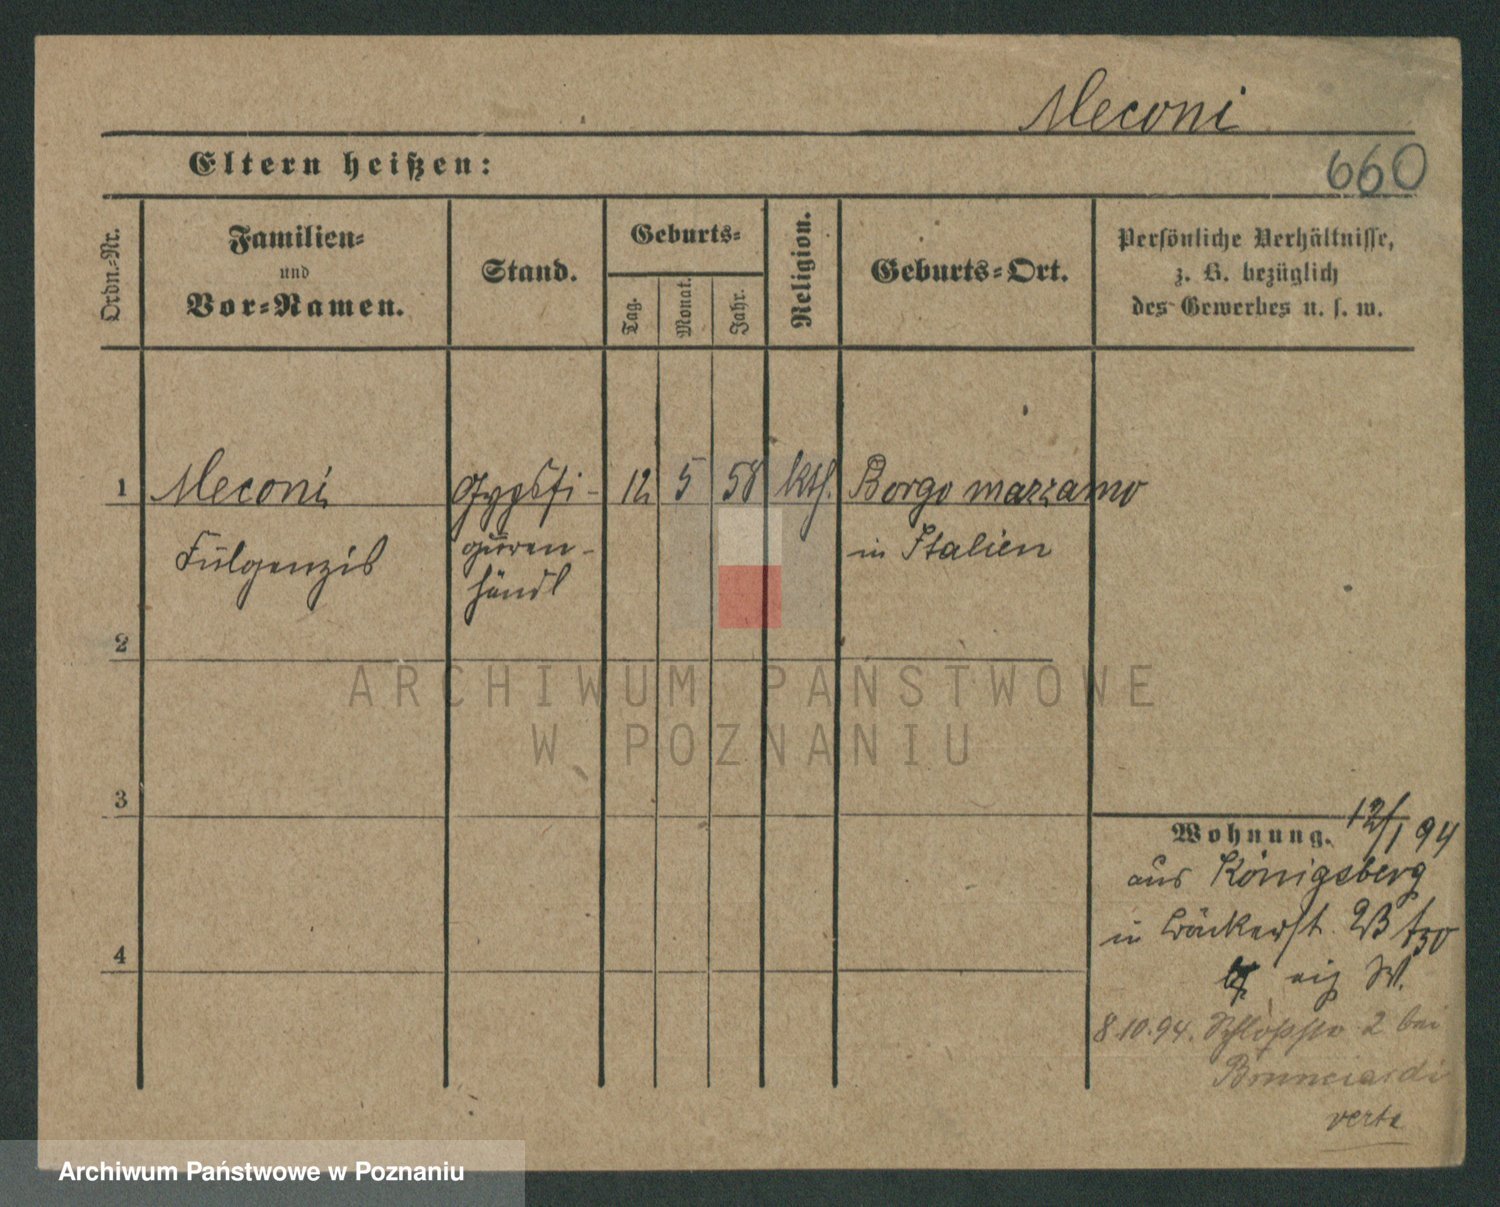 Meconi
Eltern heißen:
660
Ordn.-Nr.
Familien-
und
Vor-Namen.
Stand.
Geburts-
Tag.
Monat.
Jahr.
Religion.
Geburts-Ort.
Persönliche Verhältnisse,
z. B. bezüglich
des Gewerbes u. s. w.
1 Meconi Gypsfi- 12 5 58 kth. Borgo mazzamo
Fulgenzio guren- in Italien
händl
2
ARCHIWUM PAŃSTWOWE
W POZNANIU
3
Wohnung. 12/1 94
aus Königsberg
4
in Bäckerst.
eig W.
8.10.94. Schloßstr 2 bei
Brunciardi
verte
Archiwum Państwowe w Poznaniu